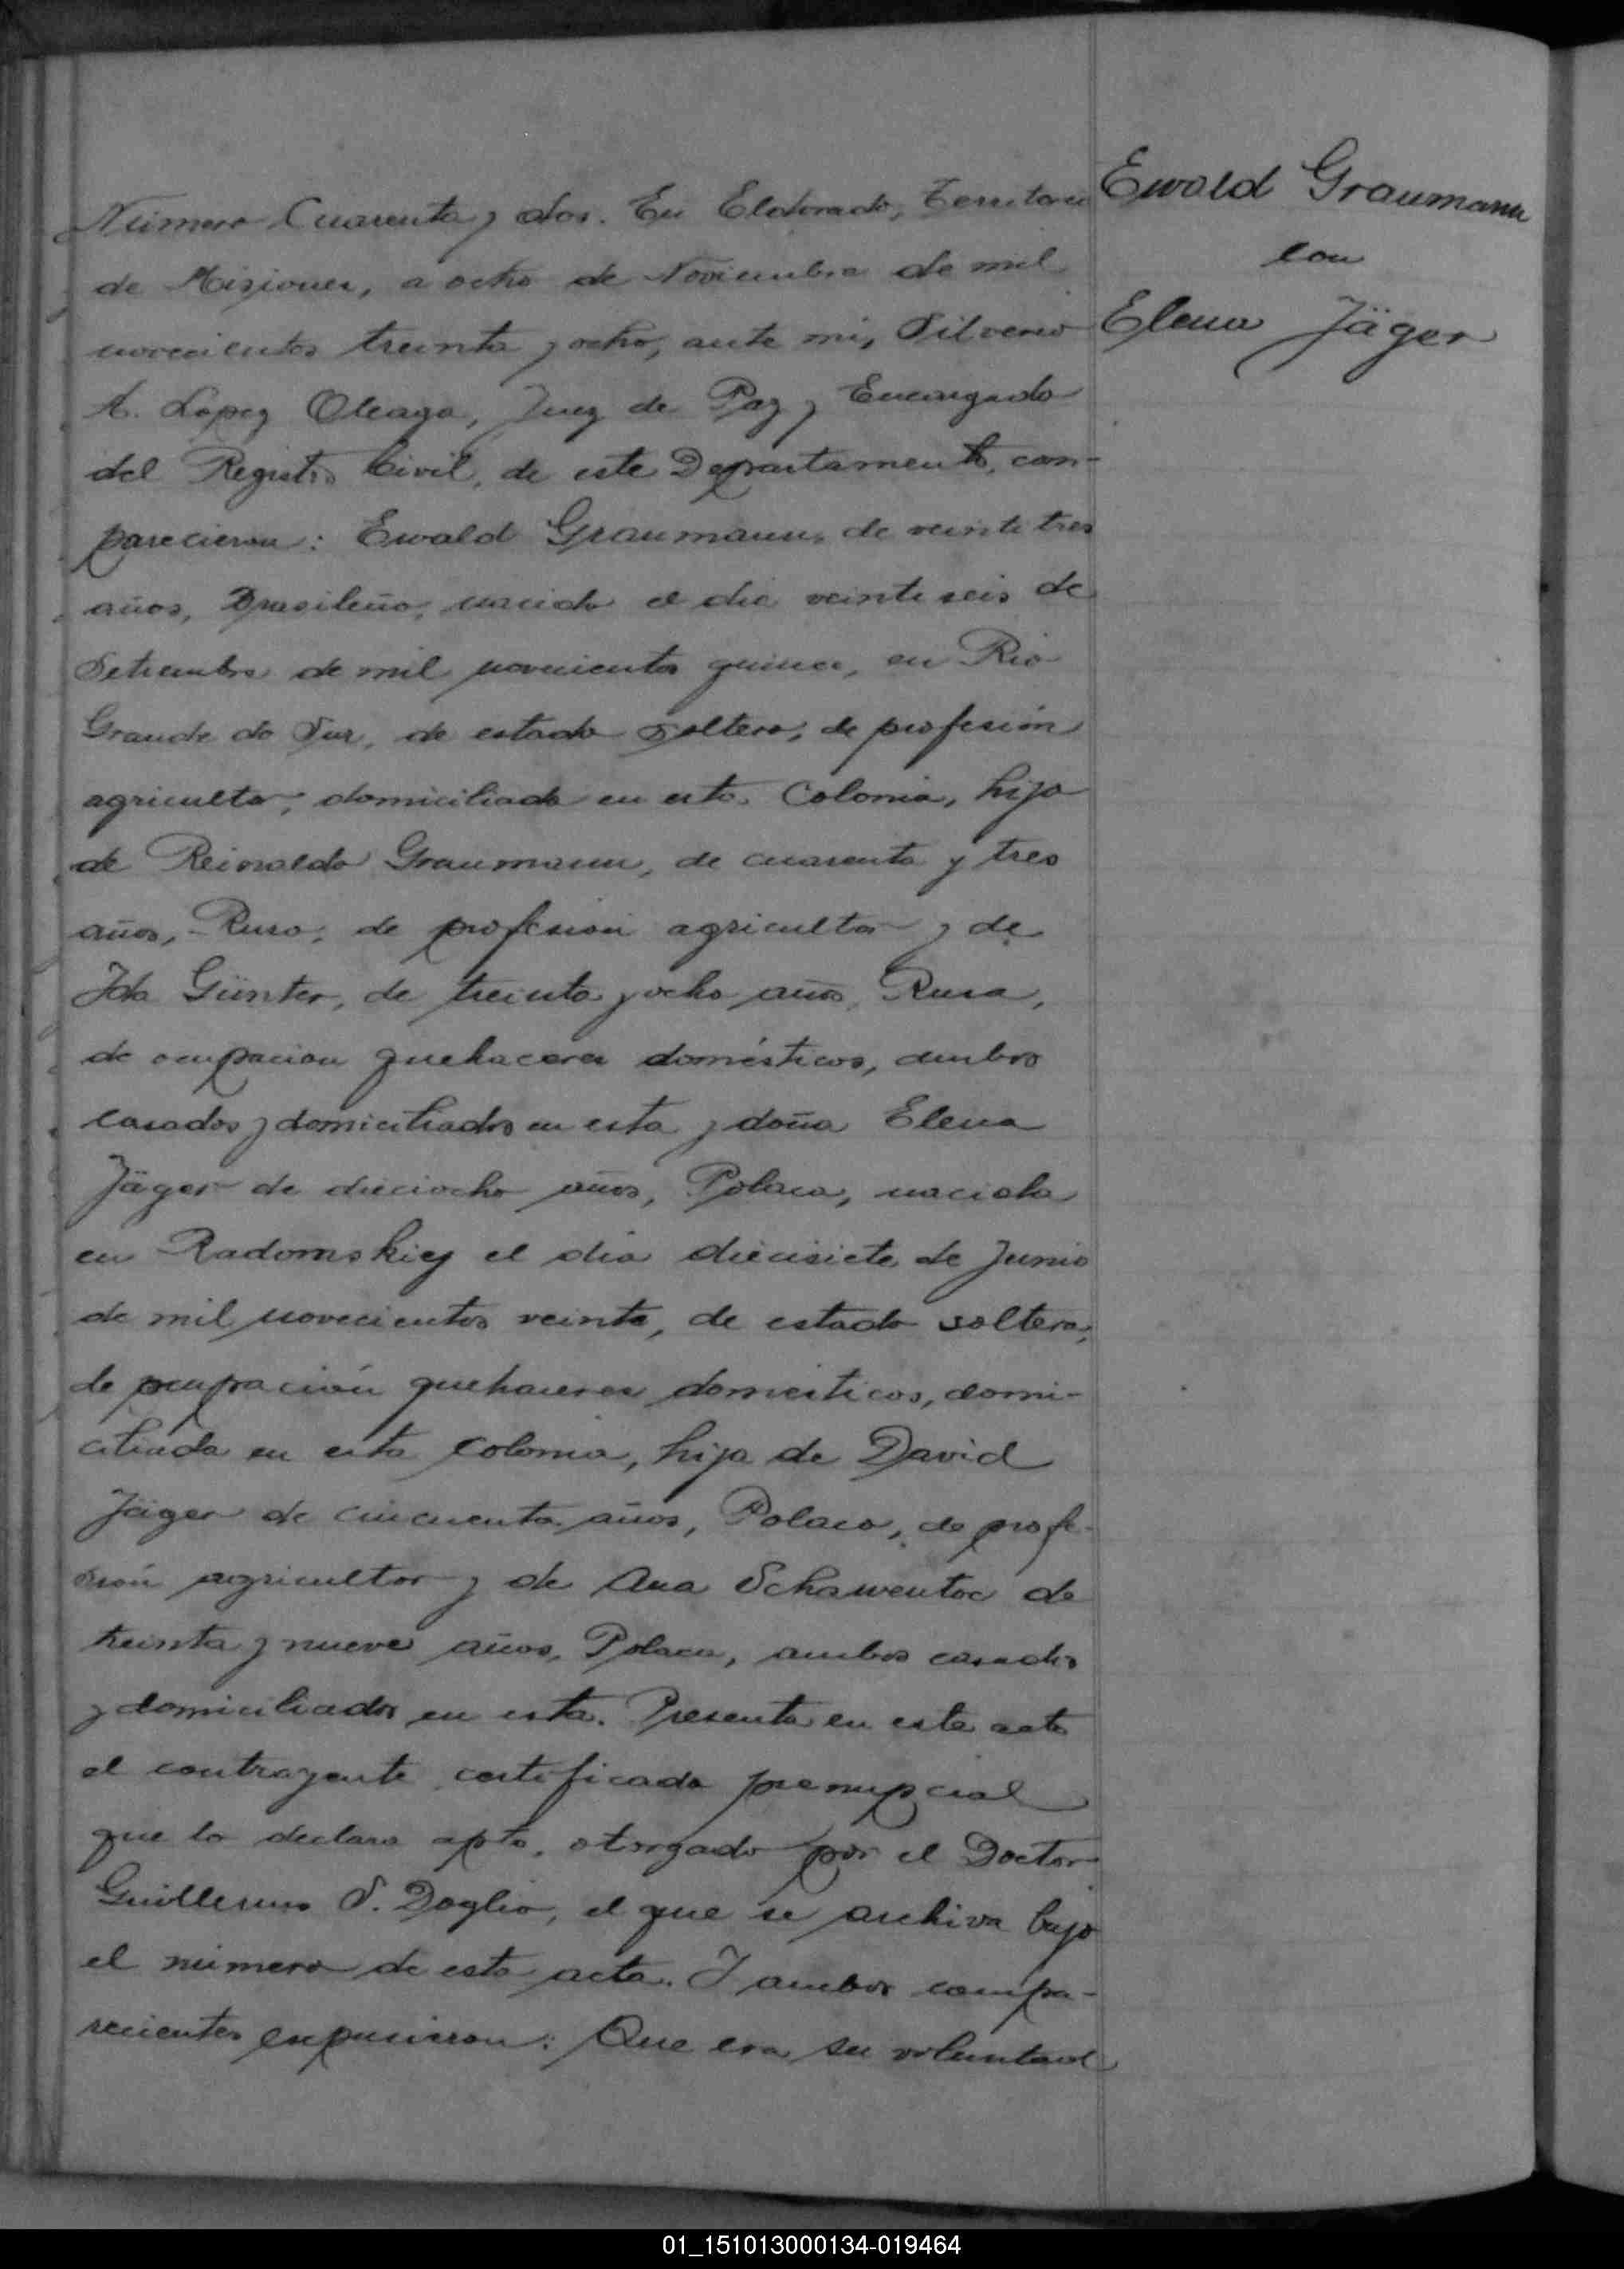 Número Cuarenta y dos. En Eldorado, Territorio
de Misiones, a ocho de Noviembre de mil
novecientos treinta y ocho, ante mi, Silverio
A. Lopez Oleaga, Juez de Paz y Encargado
del Registro Civil, de este Departamento, com-
parecieron: Ewald Graumann, de veintitres
años, Brasileño, nacido el dia veintiseis de
Setiembre de mil novecientos quince, en Rio
Grande do Sur, de estado soltero, de profesión
agricultor, domiciliado en esta Colonia, hijo
de Reinaldo Graumann, de cuarenta y tres
años, Ruso, de profesion agricultor y de
Ida Günter, de treinta y ocho años, Rusa,
de ocupacion quehaceres domésticos, ambos
casados y domiciliados en esta y doña Elena
Jäger de dieciocho años, Polaca, nacida
en Radomskiej el dia diecisiete de Junio
de mil novecientos veinte, de estado soltera,
de ocupación quehaceres domesticos, domi-
ciliada en esta colonia, hija de David
Jäger de cincuenta años, Polaco, de profe-
sión agricultor y de Ana Schawentoc de
treinta y nueve años, Polaca, ambos casados
y domiciliados en esta. Presenta en este acto
el contrayente certificado prenupcial
que lo declara apto, otorgado por el Doctor
Guillermo S. Doglio, el que se archiva bajo
el número de esta acta. Y ambos compa-
recientes expusieron: Que era su voluntad
Ewald Graumann
con
Elena Jäger
01_151013000134-019464